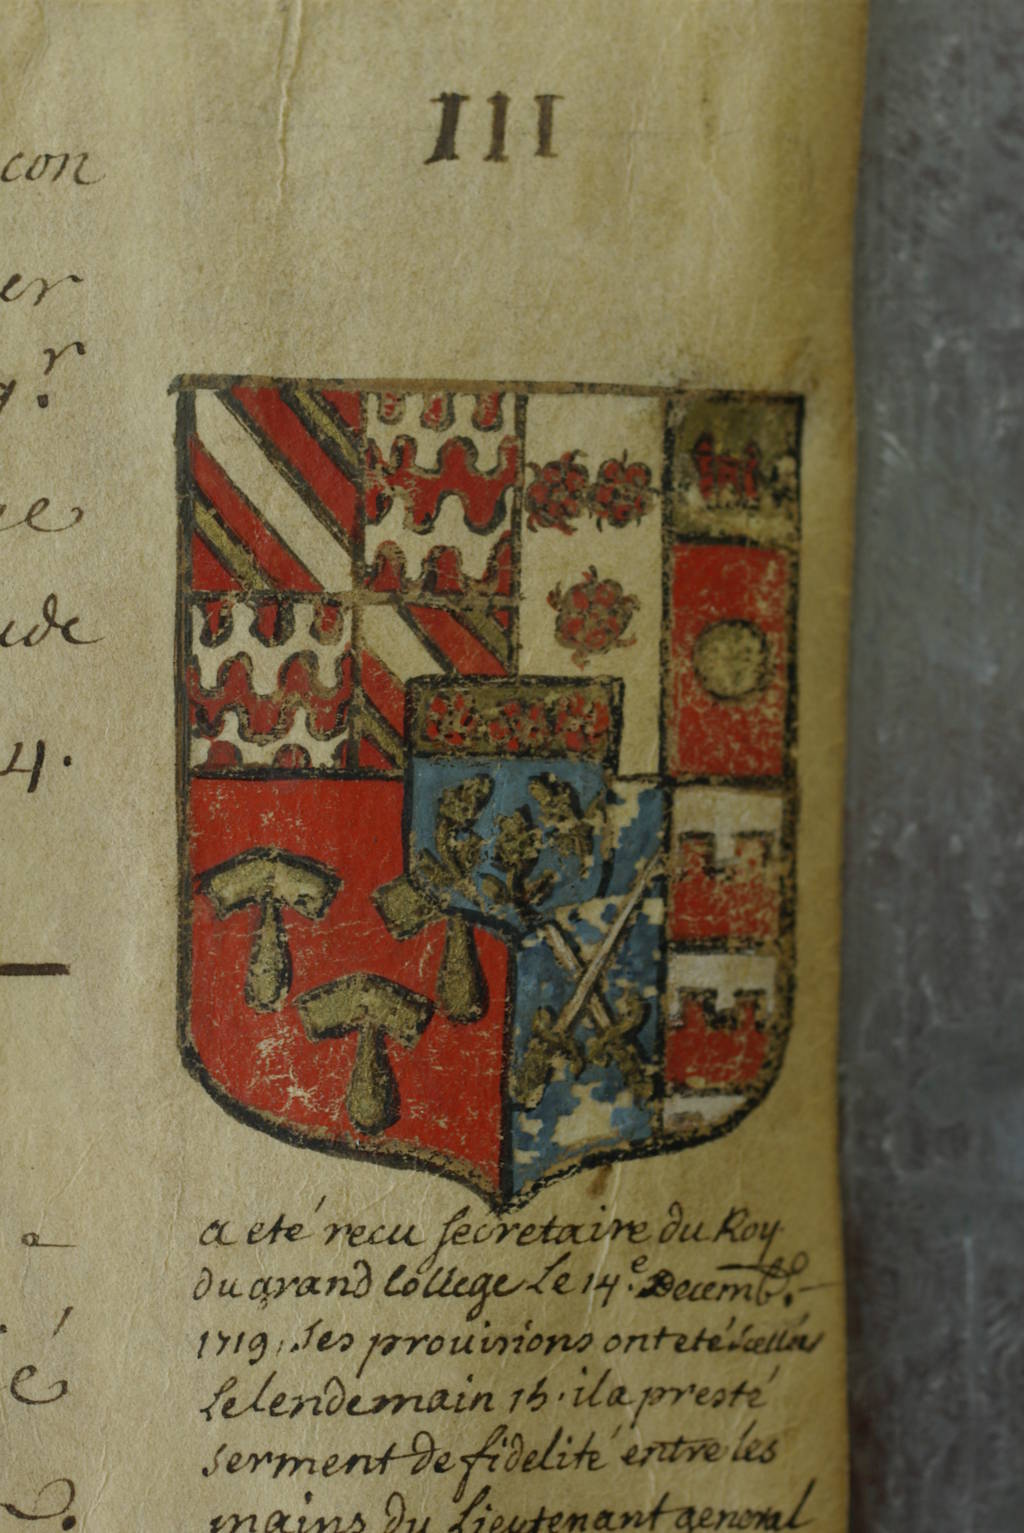 III
con
er
g.r
ge
ude
4.
a eté recu secretaire du Roy
du grand College Le 14.e Decemb.
1719, Ses provisions ont eté scellées
Le lendemain 15. il a presté
serment de fidelité entre les
mains du Lieutenant general
a
e